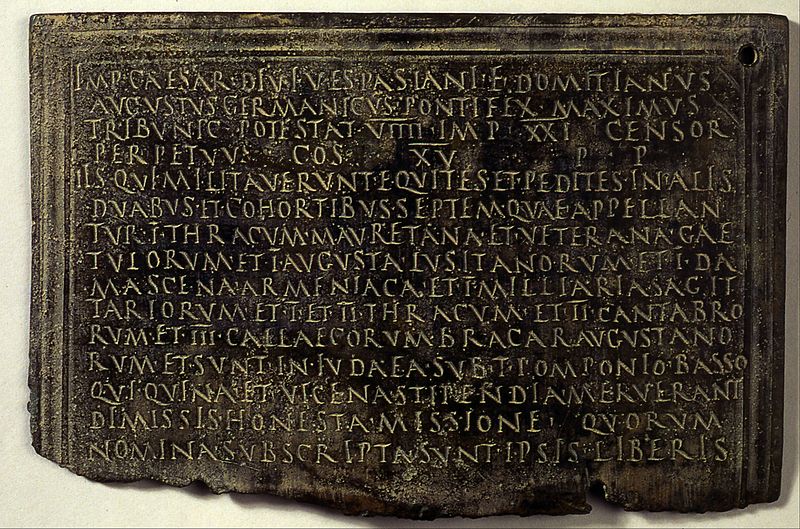 IMP·CAESAR·DIVI·VESPASIANI·F·DOMITIANVS
AVGVSTVS GERMANICVS·PONTIFEX MAXIMVS
TRIBVNIC·POTESTAT·VIIII·IMP·XXI CENSOR
PERPETVVS COS XV P P
IIS·QVI·MILITAVERVNT·EQVITES·ET·PEDITES·IN·ALIS
DVABVS·ET·COHORTIBVS·SEPTEM·QVAE·APPELLAN
TVR·I·THRACVM·MAVRETANA·ET·VETERANA·GAE
TVLORVM·ET·I·AVGVSTA LVSITANORVM·ET·I·DA
MASCENA·ARMENIACA·ET·I·MILLIARIA·SAGIT
TARIORVM·ET·I·ET·II·THRACVM·ET·II·CANTABRO
RVM·ET·III·CALLAECORVM·BRACARAVGVSTANO
RVM·ET·SVNT·IN·IVDAEA·SVB·T·POMPONIO·BASSO
QVI·QVINA·ET·VICENA STIPENDIA MERVERANT
DIMISSIS HONESTA·MISSIONE·QVORVM
NOMINA SVBSCRIPTA SVNT·IPSIS·LIBERIS